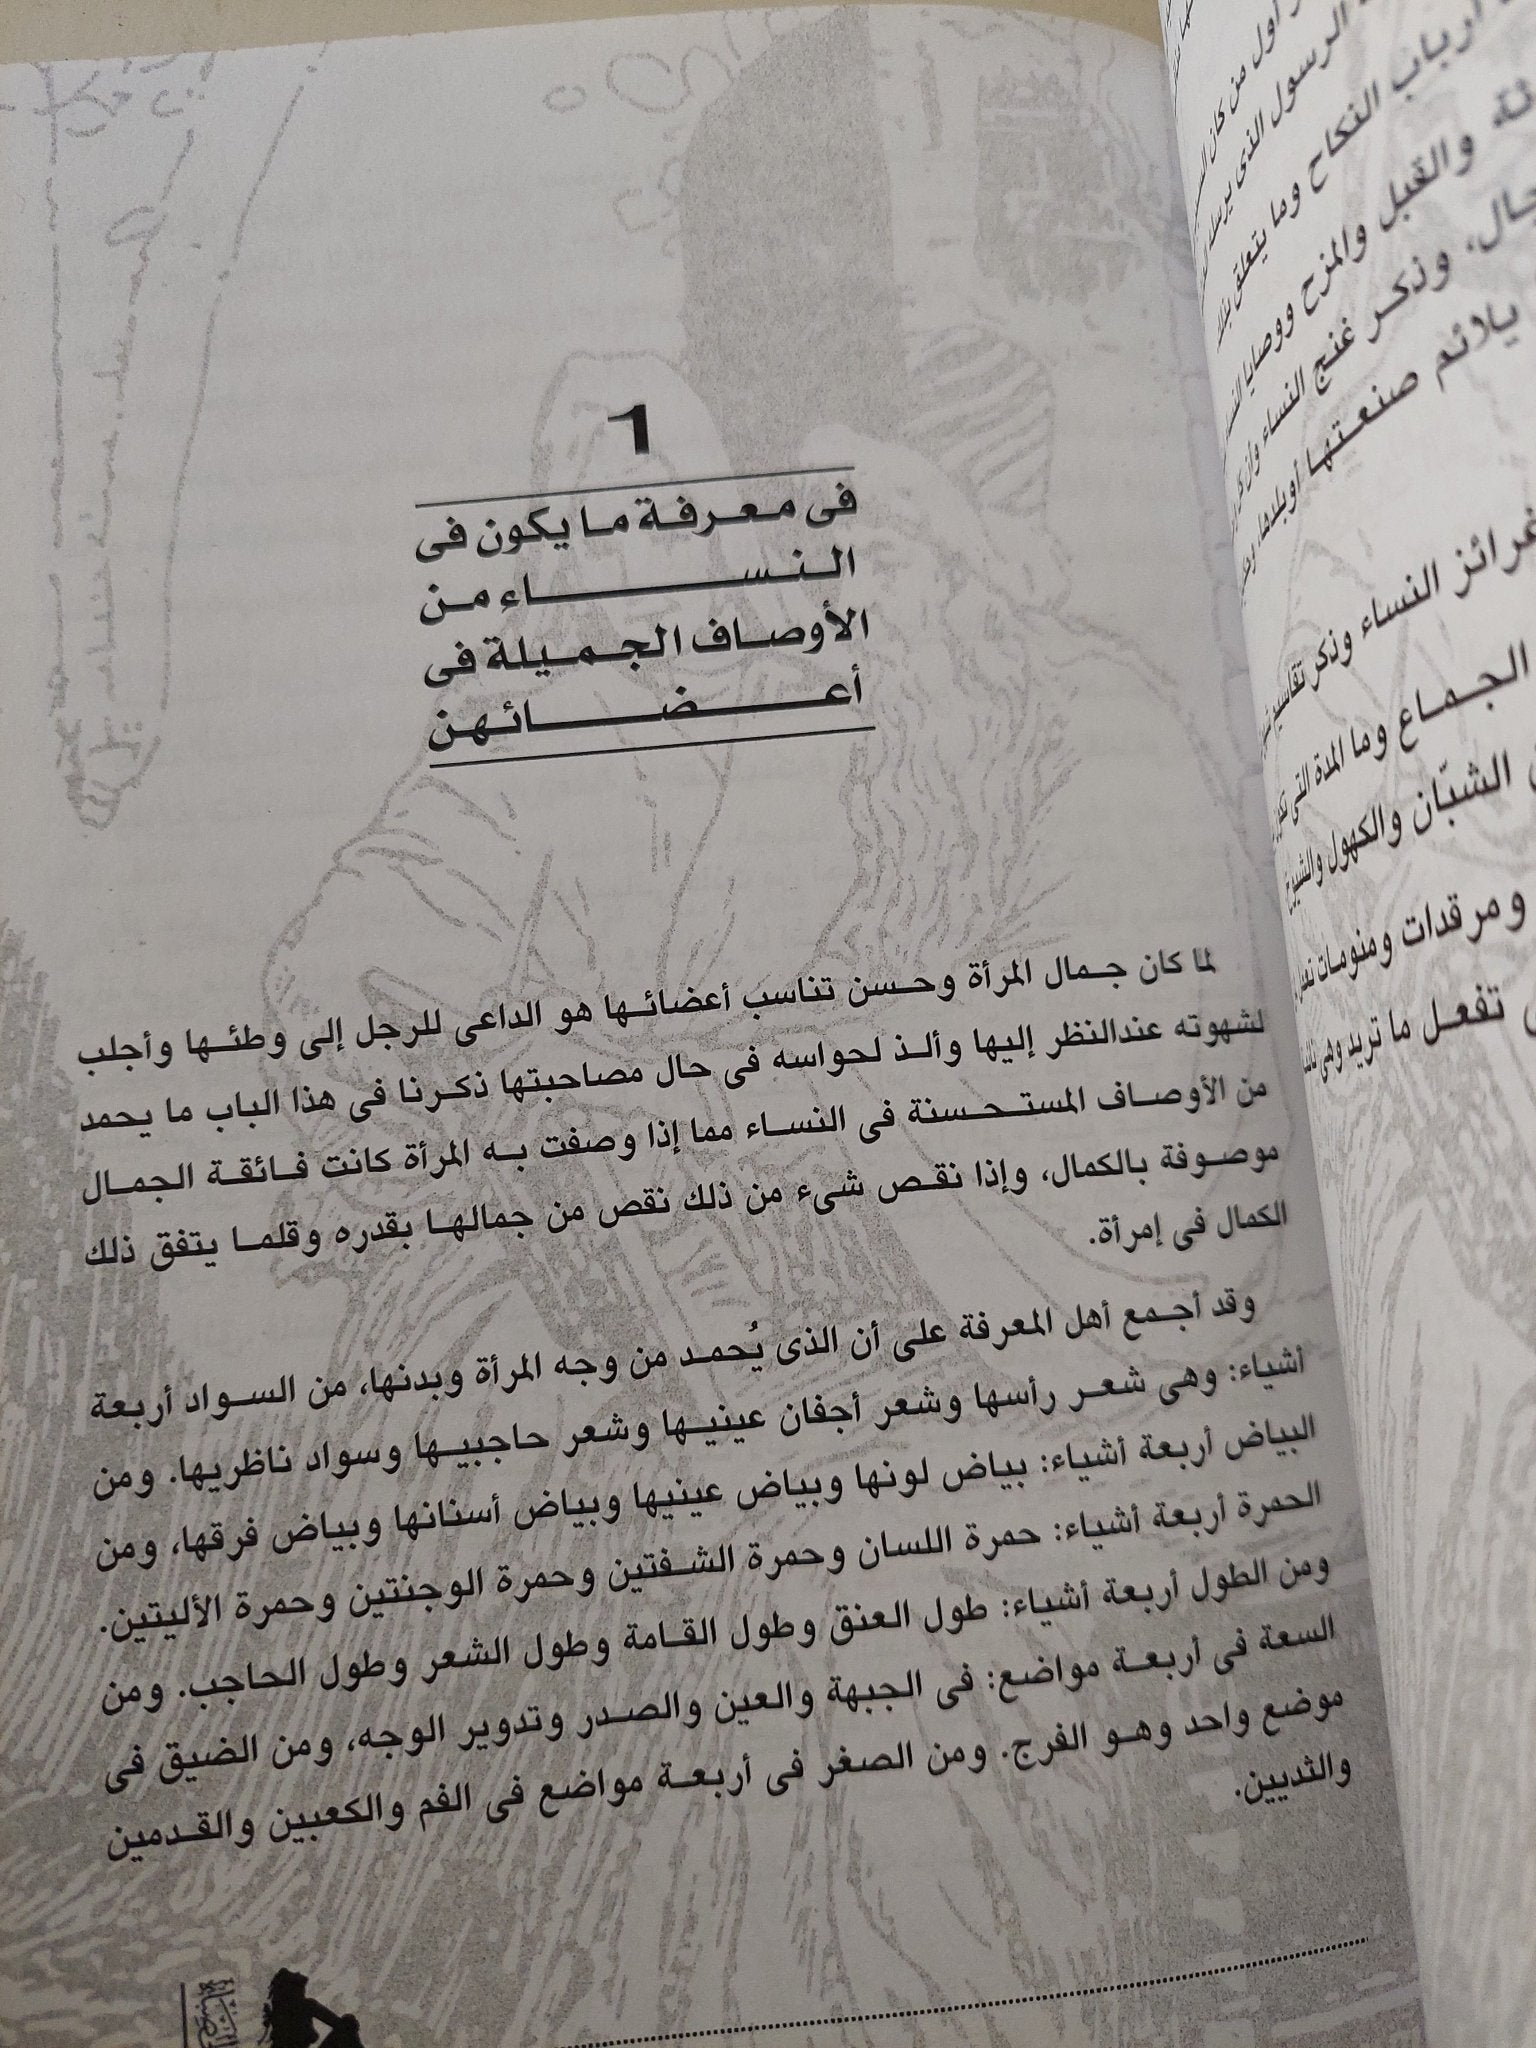 1
فى معرفة ما يكون فى
النساء من
الأوصاف الجميلة فى
أعضائهن
لما كان جمال المرأة وحسن تناسب أعضائها هو الداعى للرجل إلى وطئها وأجلب
لشهوته عندالنظر إليها وألذ لحواسه فى حال مصاحبتها ذكرنا فى هذا الباب ما يحمد
من الأوصاف المستحسنة فى النساء مما إذا وصفت به المرأة كانت فائقة الجمال
موصوفة بالكمال، وإذا نقص شىء من ذلك نقص من جمالها بقدره وقلما يتفق ذلك
الكمال فى إمرأة.
وقد أجمع أهل المعرفة على أن الذى يُحمد من وجه المرأة وبدنها، من السواد أربعة
أشياء: وهى شعر رأسها وشعر أجفان عينيها وشعر حاجبيها وسواد ناظريها. ومن
البياض أربعة أشياء: بياض لونها وبياض عينيها وبياض أسنانها وبياض فرقها، ومن
الحمرة أربعة أشياء: حمرة اللسان وحمرة الشفتين وحمرة الوجنتين وحمرة الأليتين.
ومن الطول أربعة أشياء: طول العنق وطول القامة وطول الشعر وطول الحاجب. ومن
السعة فى أربعة مواضع: فى الجبهة والعين والصدر وتدوير الوجه، ومن الضيق فى
موضع واحد وهو الفرج. ومن الصغر فى أربعة مواضع فى الفم والكعبين والقدمين
والثديين.
أول من كان
الرسول الذى
أرباب النكاح وما يتعلق
والقبل والمزح ووصايا
وذكر غنج النساء
يلائم صنعتها
النساء وذكر
الجماع وما المدة التى
الشبّان والكهول
ومرقدات ومنومات
تفعل ما تريد وهى